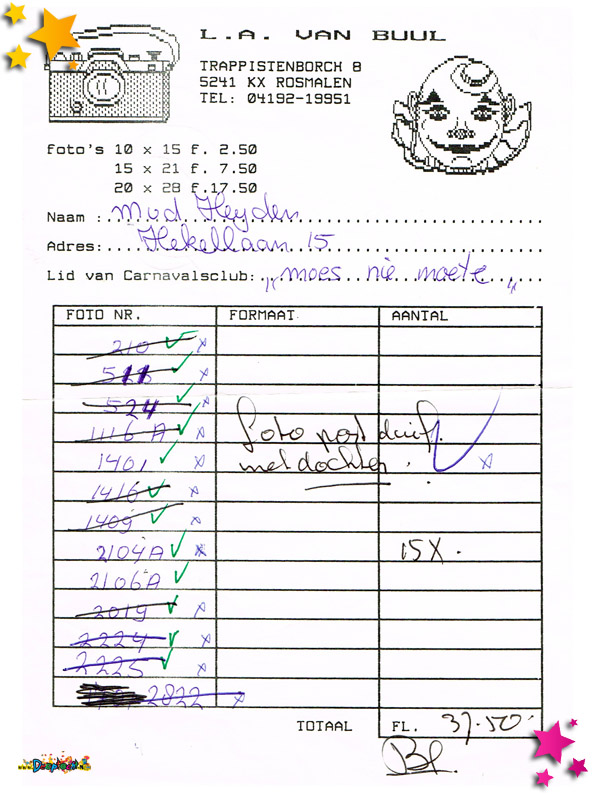 L.A. VAN BUUL
TRAPPISTENBORCH 8
5241 KX ROSMALEN
TEL: 04192-19951
foto's 10 x 15 f. 2.50
15 x 21 f. 7.50
20 x 28 f.17.50
Naam : Mvd Heyden
Adres: Hekellaan 15
Lid van Carnavalsclub: "moes nie moete"
FOTO NR. FORMAAT AANTAL
210 ✓ x
511 ✓ x
524 ✓ x
1116 A ✓
1401 ✓ x
foto post duif.
met dochter. ✓ x
1416 ✓ x
1409 ✓ x
2104A ✓ x 15X.
2106A ✓
2019 ✓ x
2224 ✓ x
2225 ✓ x
2822 x
TOTAAL FL. 37.50